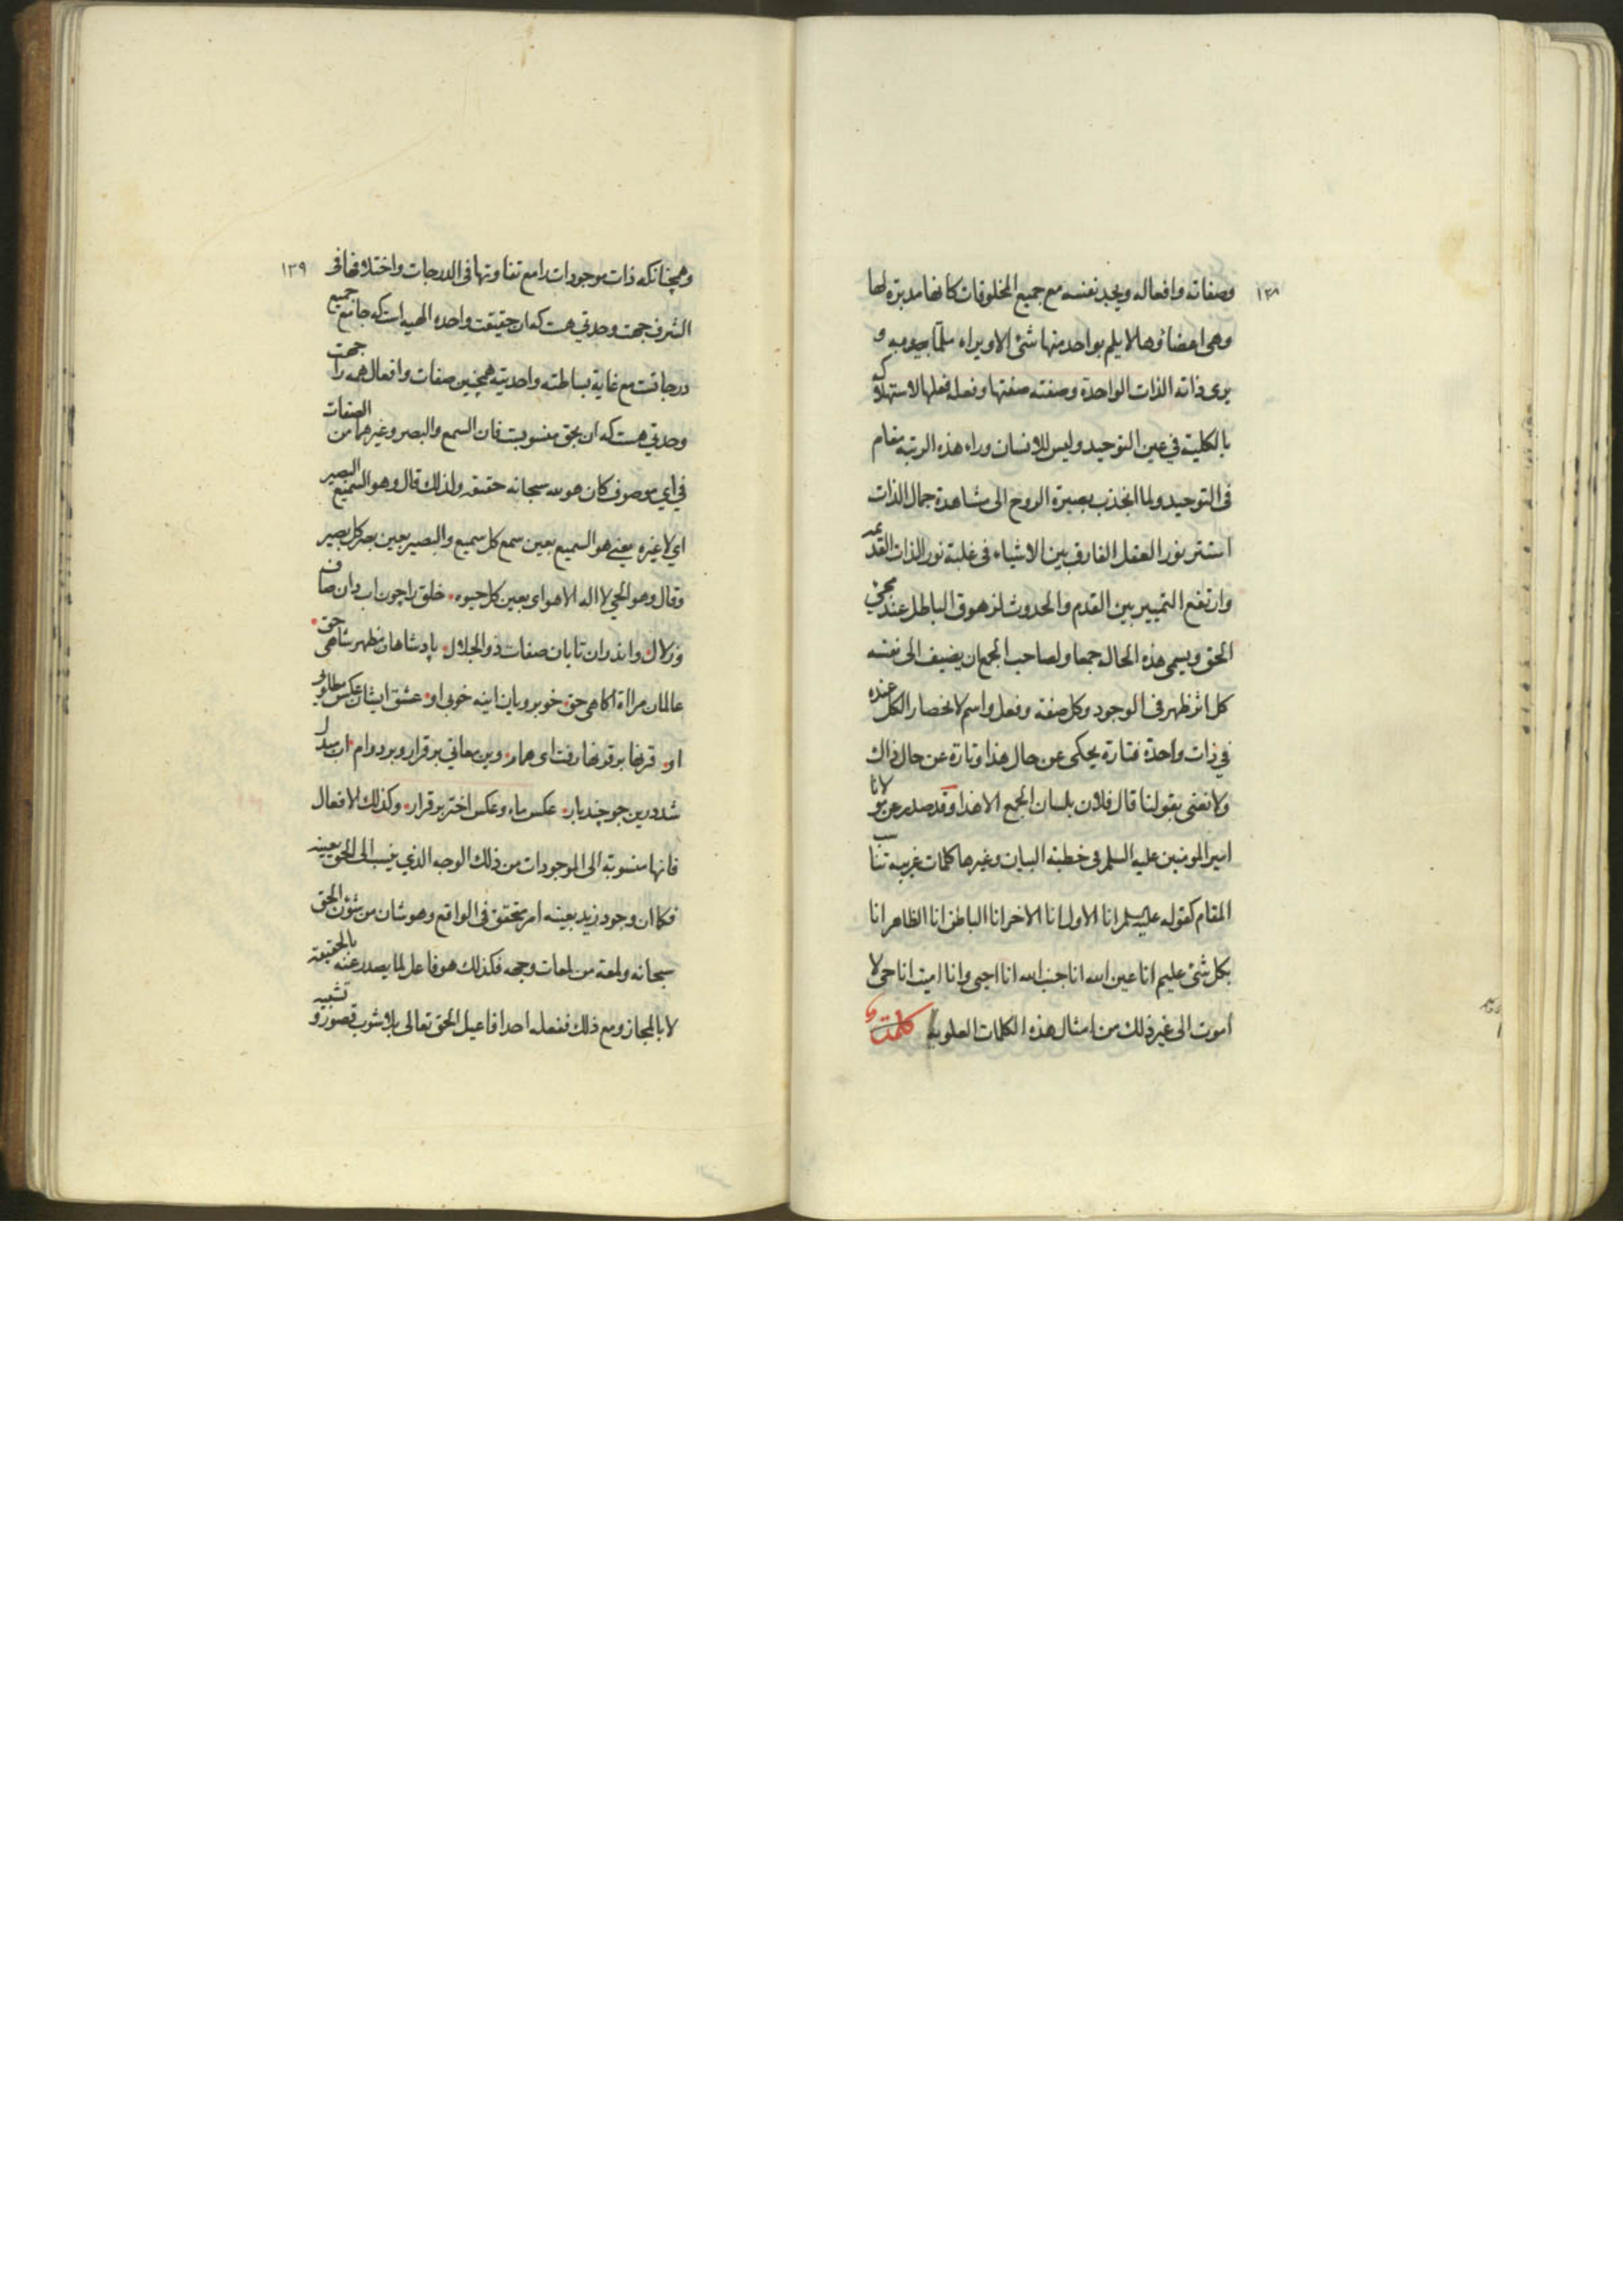 ١٣٨
وصفاته وافعاله ويجد نفسه مع جميع المخلوقات كانها مدبرة لها
وهي اعضاؤها لا يلم بواحد منها شئ الا ويراه ملما به و
يرى ذاته الذات الواحدة وصفته صفتها وفعله فعلها لاستهلاكه
بالكلية في عين التوحيد وليس للانسان وراء هذه الرتبة مقام
في التوحيد ولما انجذب بصيرة الروح الى مشاهدة جمال الذات
استتر نور العقل الفارق بين الاشياء في غلبة نور الذات القديمة
وارتفع التمييز بين القدم والحدوث لزهوق الباطل عند مجئ
الحق ويسمى هذه الحالة جمعا ولصاحب الجمع ان يضيف الى نفسه
كل اثر ظهر في الوجود وكل صفة وفعل واسم لانحصار الكل عنده
في ذات واحدة فتارة يحكى عن حال هذا وتارة عن حال ذاك
ولا نعنى بقولنا قال فلان بلسان الجمع الا هذا وقد صدر عن مولانا
امير المومنين عليه السلم في خطبة البيان وغيرها كلمات غريبه تناسب
المقام كقوله عليه السلم انا الاول انا الاخر انا الباطن انا الظاهر انا
بكل شئ عليم انا عين الله انا جنب الله انا احيى وانا اميت انا حى لا
اموت الى غير ذلك من امثال هذه الكلمات العلويه كلمة
١٣٩
وهمچنانكه ذات موجودات را مع تفاوتها في الدرجات واختلافها في
الشرف جهت وحدتي هست كه ان حقيقت واحده الهيه است كه جامع جميع
درجاتست مع غاية بساطته واحديته همچنين صفات وافعال همه را جهت
وحدتي هست كه ان بحق منسوبست فان السمع والبصر وغيرهما من الصفات
في اي موصوف كان هو لله سبحانه حقيقه ولذلك قال وهو السميع البصير
اي لا غيره يعني هو السميع بعين سمع كل سميع والبصير بعين بصر كل بصير
وقال وهو الحي لا اله الا هو اي بعين كل حيوه خلق را چون اب دان صاف
وزلال واندران تابان صفات ذو الجلال پادشاهان مظهر شاهى حق
عالمان مرااة اكاهى حق خوبرويان اينه خوبى او عشق ايشان عكس مطلوبى
او قرنها بر قرنها رفت اى همام وين معاني بر قرار وبر دوام اب مبدل
شد درين جو چند بار عكس ماه وعكس اختر بر قرار وكذلك الافعال
فانها منسوبة الى الموجودات من ذلك الوجه الذي ينسب الى الحق بعينه
فكما ان وجود زيد بعينه امر متحقق في الواقع وهو شان من شؤن الحق
سبحانه ولمعة من لمعات وجهه فكذلك هو فاعل لما يصدر عنه بالحقيقة
لا بالمجاز ومع ذلك ففعله احد افاعيل الحق تعالى بلا شوب قصور وتشبيه